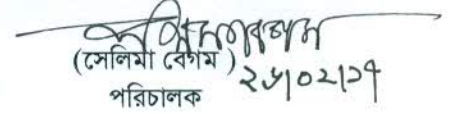 (সেলিমা বেগম)
২৮/০২/১৭
পরিচালক